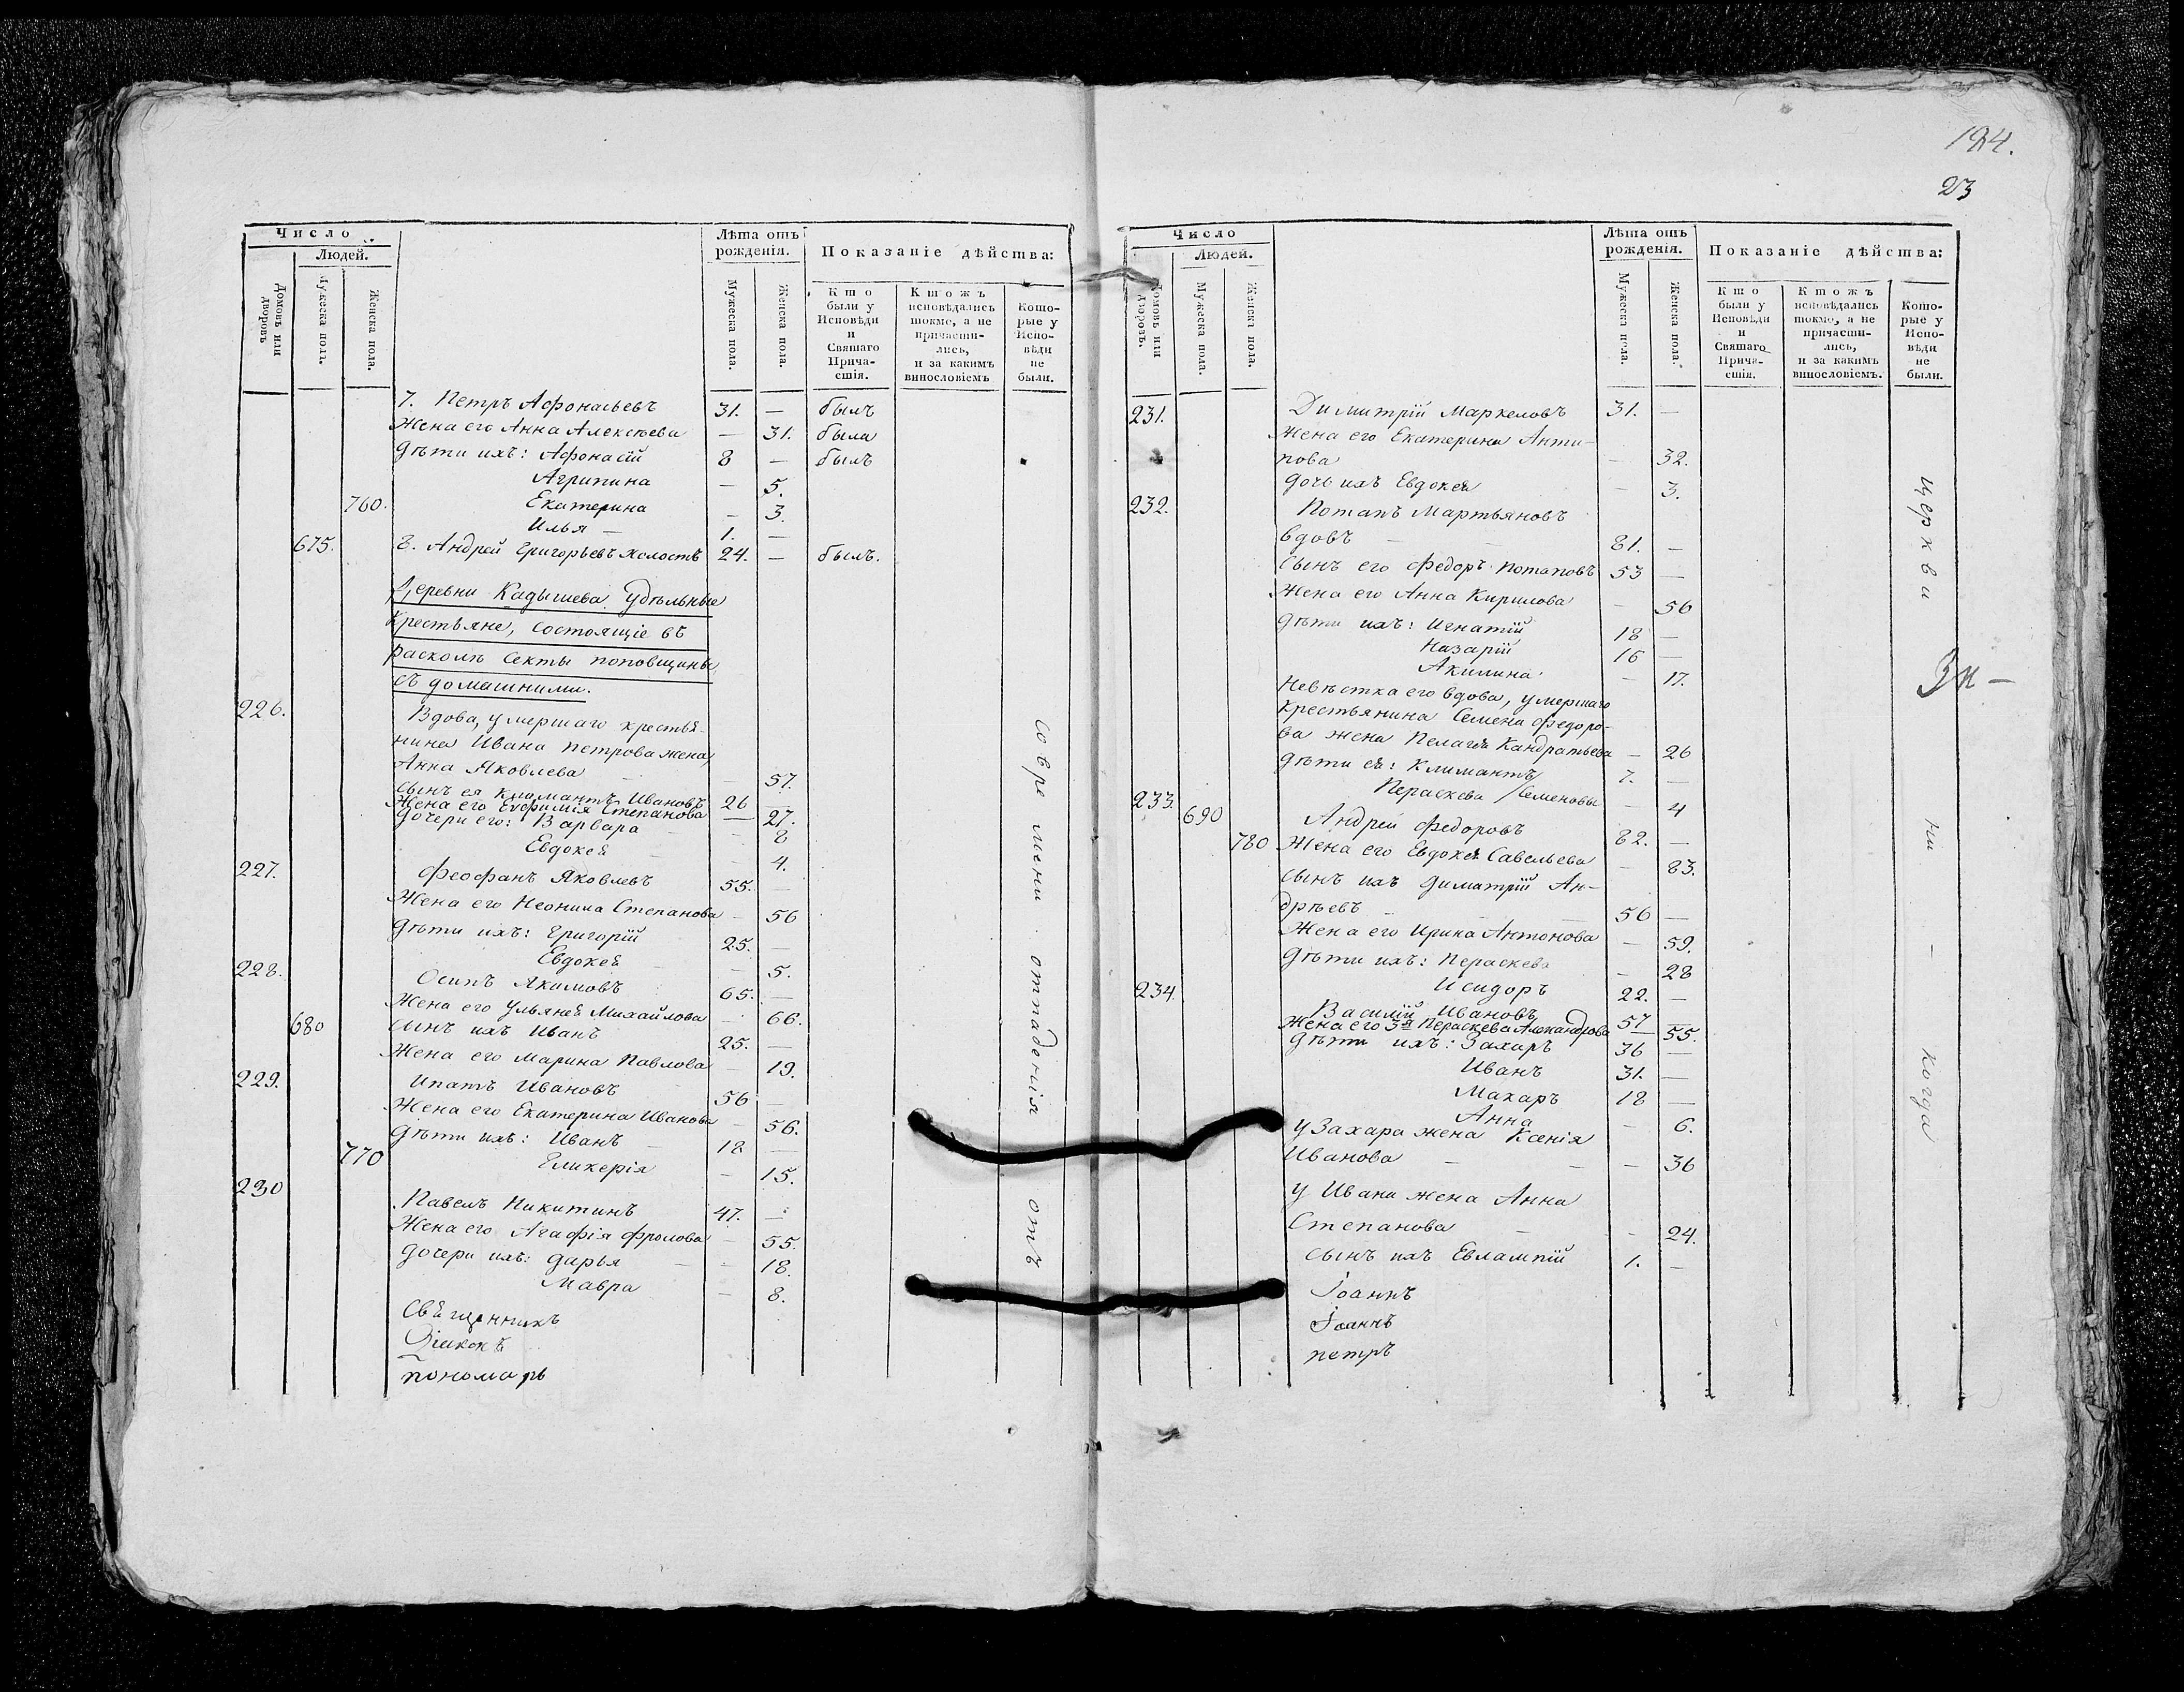 Число
Людей.
Лѣта отъ рожденія.
Показаніе дѣйства:
Домовъ или дворовъ
Мужеска полъ.
Женска пола.
Мужеска пола.
Женска пола.
Кто были у Исповѣди и Святаго Причастія.
Ктожъ исповѣдались токмо, а не причастились, и за какимъ винословіемъ
Которые у Исповѣди не были.
7. Петръ Афонасьевъ 31. — былъ
Жена его Анна Алексѣева — 31. была
Дѣти ихъ: Афонасій 8 — былъ
Агрипина — 5.
760. Екатерина — 3.
Илья — 1. —
675. 8. Андрей Григорьевъ холостъ 24. — былъ.
Деревни Кадышева Удѣльные
Крестьяне, состоящіе въ
расколѣ Секты поповщины
съ домашними.
226. Вдова, умершаго крестья-
нина Ивана Петрова жена,
Анна Яковлева — 57.
Сынъ ея Климантъ Ивановъ 26 —
Жена его Евфимія Степанова — 27.
Дочери его: Варвара — 8
Евдокея — 4.
227. Феофанъ Яковлевъ 55. —
Жена его Неонила Степанова — 56
Дѣти ихъ: Григорій 25. —
Евдокея — 5.
228. Осипъ Якимовъ 65. —
Жена его Ульянея Михайлова — 66.
680 Сынъ ихъ Иванъ 25. —
Жена его Марина Павлова — 19.
229. Ипатъ Ивановъ 56 —
Жена его Екатерина Иванова — 56.
Дѣти ихъ: Иванъ — 18 —
770 Гликерія — 15.
230 Павелъ Никитинъ 47. —
Жена его Агафія Фролова — 55.
Дочери ихъ: Дарья — 18.
Мавра — 8.
Священникъ
Діаконъ
пономарь
Со вре мени отпаденія отъ
184.
23
Число
Людей.
Лѣта отъ рожденія.
Показаніе дѣйства:
Домовъ или дворовъ.
Мужеска пола.
Женска пола.
Мужеска пола.
Женска пола.
Кто были у Исповѣди и Святаго Причастія.
Ктожъ исповѣдались токмо, а не причастились, и за какимъ винословіемъ.
Которые у Исповѣди не были.
231. Димитрій Маркеловъ 31. —
Жена его Екатерина Анти-
пова — 32.
Дочь ихъ Евдокея — 3.
232. Потапъ Мартьяновъ
вдовъ — 81. —
Сынъ его Федоръ Потаповъ 53 —
Жена его Анна Кирилова — 56
Дѣти ихъ: Игнатій 18 —
Назарій 16 —
Акилина — 17.
Невѣстка его вдова, умершаго
Крестьянина Семена Федоро-
ва жена Пелагея Кандратьева — 26
Дѣти ея: Климантъ 7. —
Пераскева Семеновы — 4
233. 690 Андрей Федоровъ 82. —
780 Жена его Евдокея Савельева — 83.
Сынъ ихъ Димитрій Ан-
дрѣевъ — 56 —
Жена его Ирина Антонова — 59.
Дѣти ихъ: Пераскева — 28
Исидоръ 22. —
234. Василій Ивановъ 57 —
Жена его 3я Пераскева Александрова — 55.
Дѣти ихъ: Захаръ 36 —
Иванъ 31. —
Макаръ 18 —
Анна — 6.
У Захара жена Ксенія
Иванова — 36
У Ивана жена Анна
Степанова — 24.
Сынъ ихъ Евлампій 1. —
Іоаннъ
Іоаннъ
петръ
Церкви
когда